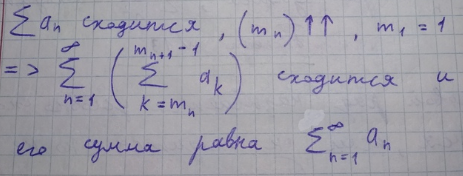 ∑ aₙ сходится, (mₙ)↑↑, m₁ = 1
=> ∑_{n=1}^{∞} ( ∑_{k=mₙ}^{mₙ₊₁-1} aₖ ) сходится и
его сумма равна ∑_{n=1}^{∞} aₙ